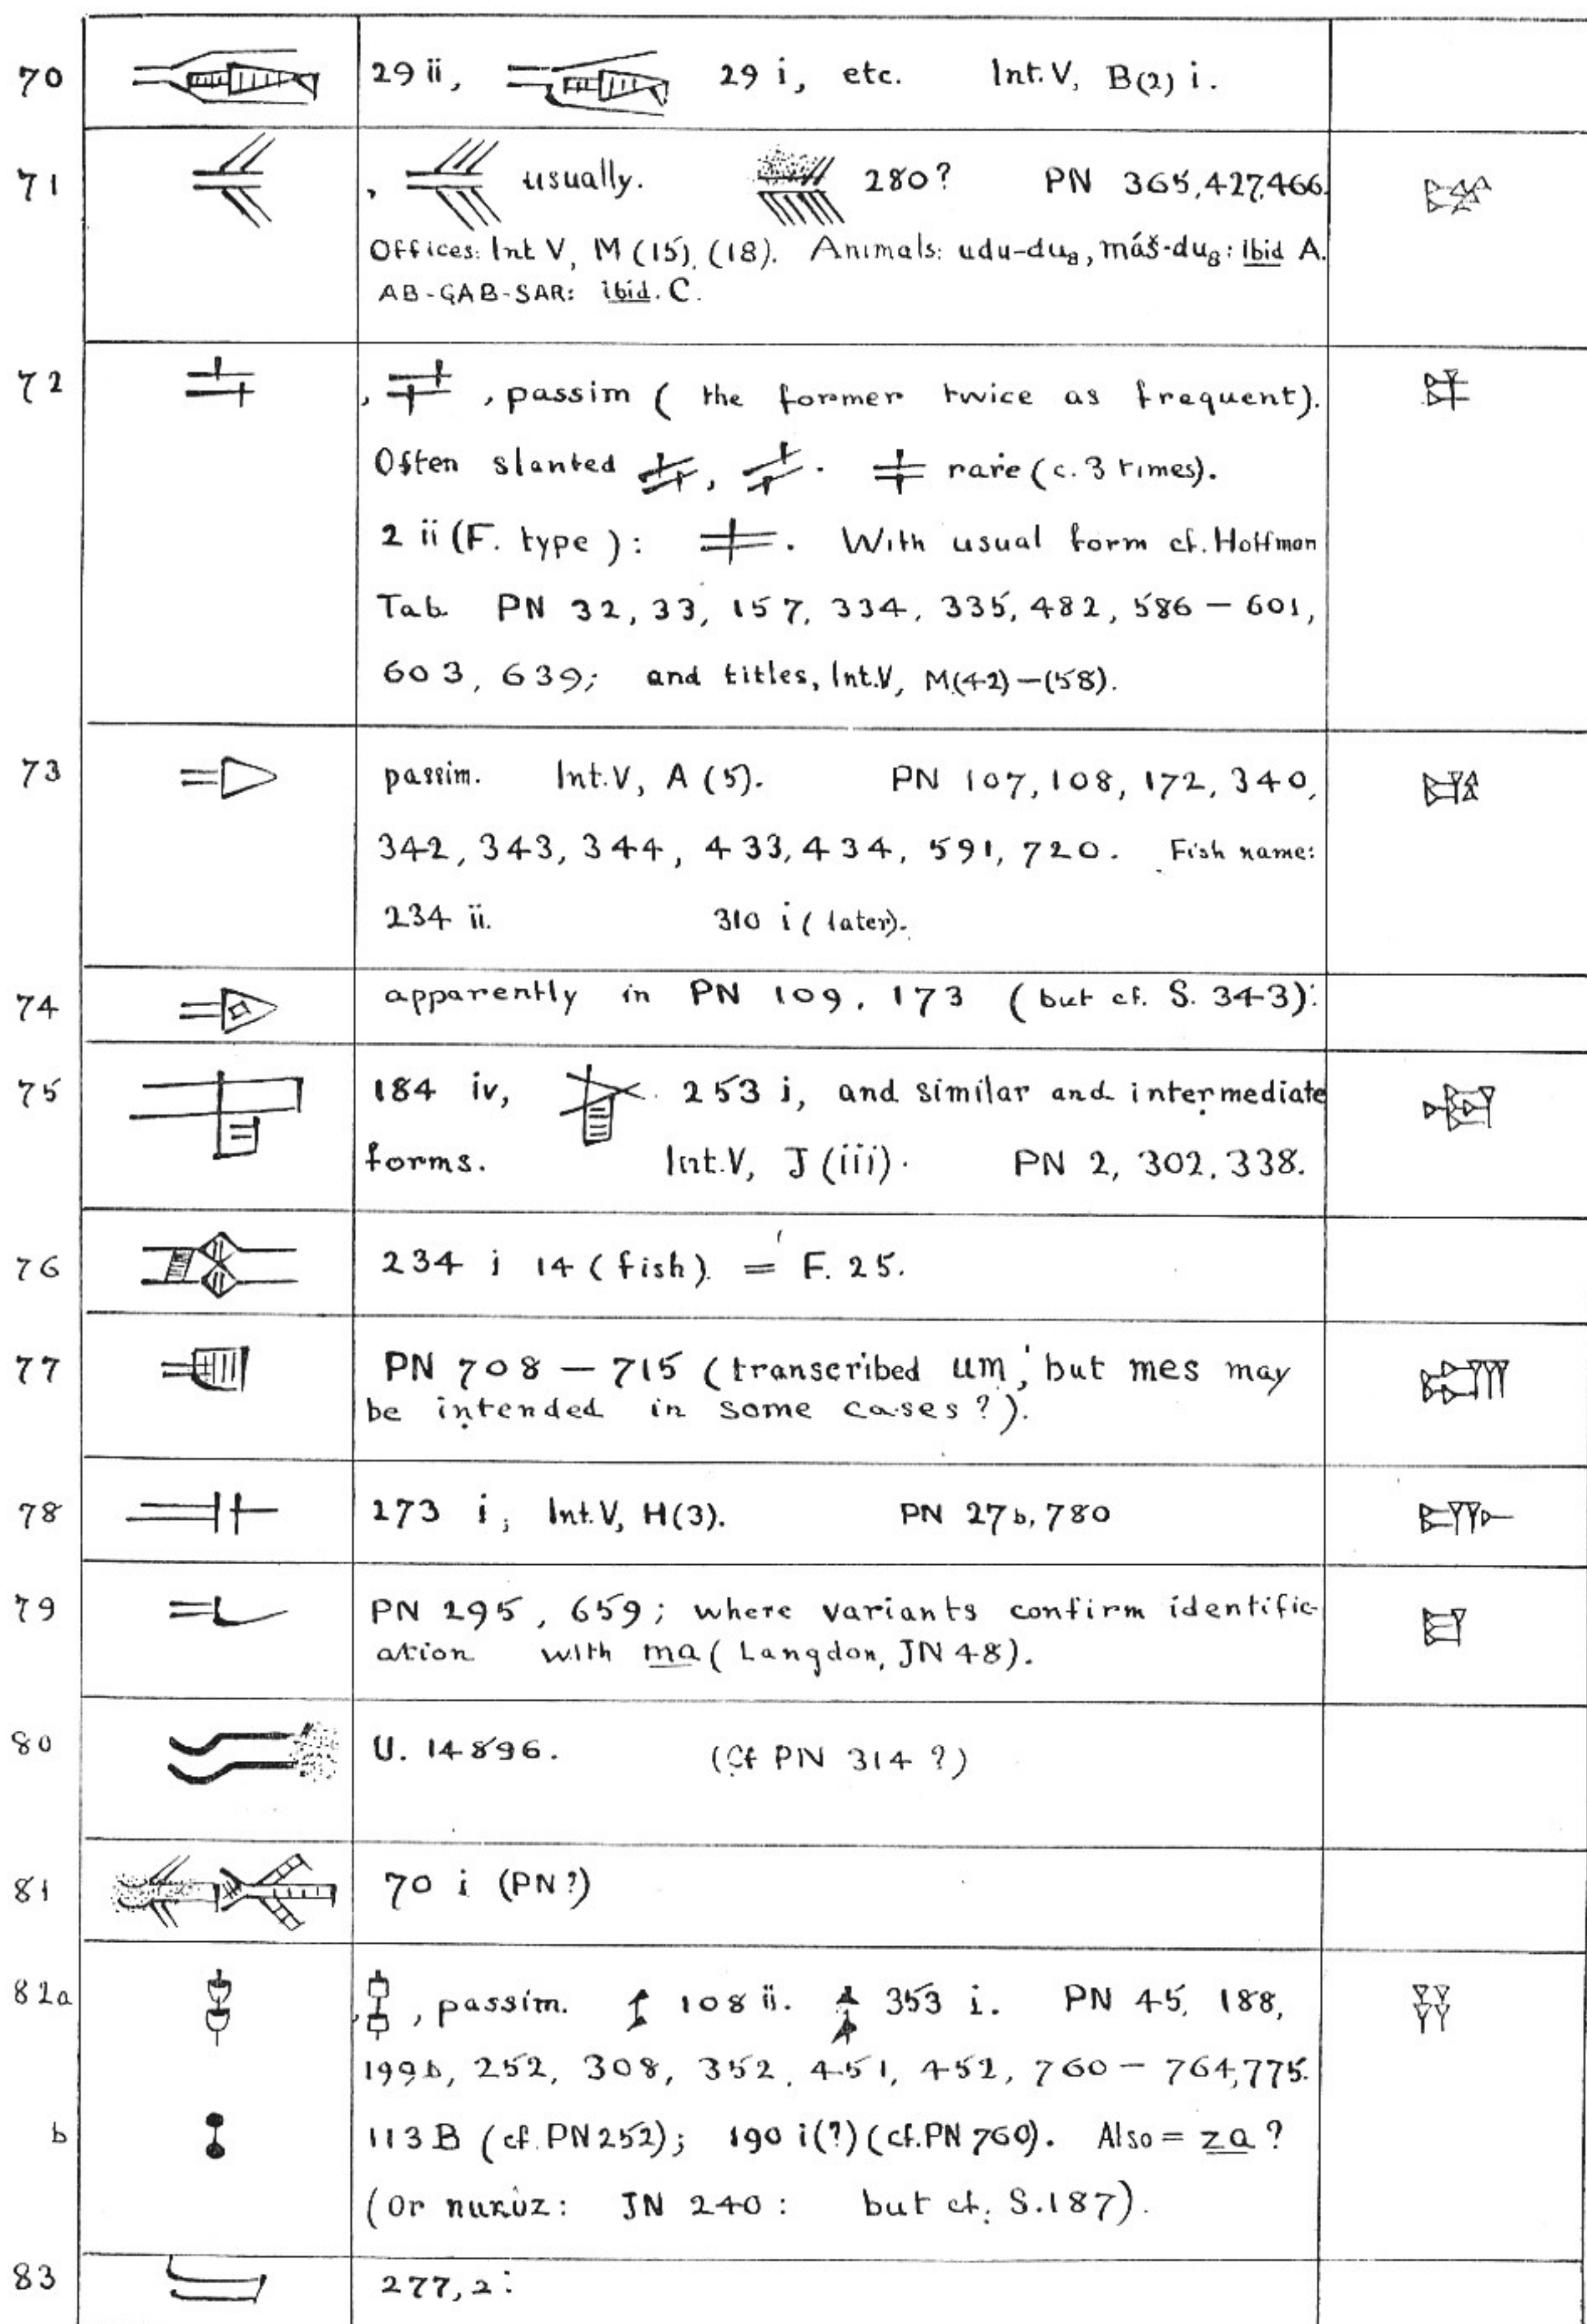 70 29 ii, 29 i, etc. Int. V, B(2) i.
71 , usually. 280? PN 365, 427, 466.
Offices: Int V, M (15), (18). Animals: udu-du₈, máš-du₈: ibid A.
AB-GAB-SAR: ibid. C.
72 , , passim ( the former twice as frequent).
Often slanted , . rare (c. 3 times).
2 ii (F. type ): . With usual form cf. Hoffman
Tab. PN 32, 33, 157, 334, 335, 482, 586 – 601,
603, 639; and titles, Int.V, M(42)–(58).
73 passim. Int.V, A (5). PN 107, 108, 172, 340,
342, 343, 344, 433, 434, 591, 720. Fish name:
234 ii. 310 i ( later).
74 apparently in PN 109, 173 ( but cf. S. 343).
75 184 iv, 253 i, and similar and intermediate
forms. Int.V, J (iii). PN 2, 302, 338.
76 234 i 14 ( fish) = F. 25.
77 PN 708 – 715 (transcribed um, but mes may
be intended in some cases?).
78 273 i, Int.V, H(3). PN 27b, 780
79 PN 295, 659; where variants confirm identific-
ation with ma ( Langdon, JN 48).
80 U. 14896. (Cf PN 314 ?)
81 70 i (PN?)
82a , , passim. 108 ii. 353 i. PN 45, 188,
199b, 252, 308, 352, 451, 452, 760 – 764, 775.
b 113 B (cf. PN 252); 190 i(?) (cf. PN 760). Also = za ?
(or nunuz: JN 240: but cf. S.187).
83 277, 2: